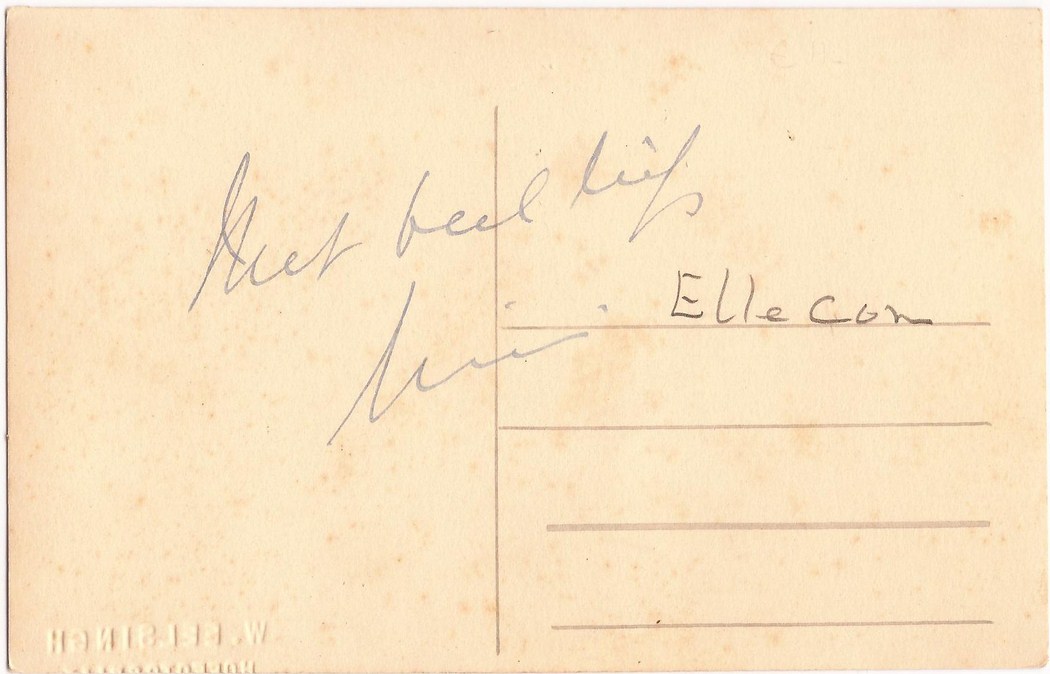 Met veel liefs
Ellecom
W. EELSINGH